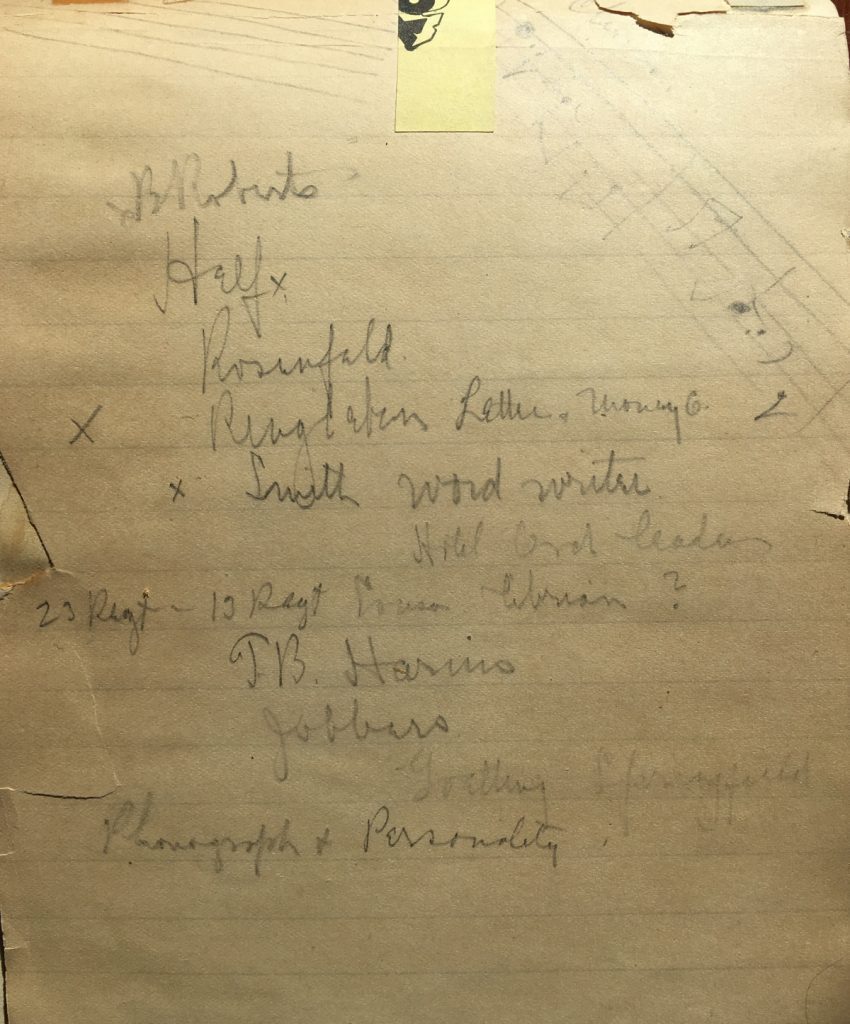 B Roberts
Half x
Rosenfeld.
X Letter. Money O. 2
x Smith word writer
Hotel Orch Leaders
23 Regt - 13 Regt ?
T.B. Harms
Jobbers
Goetting Springfield
Phonograph & Personality.